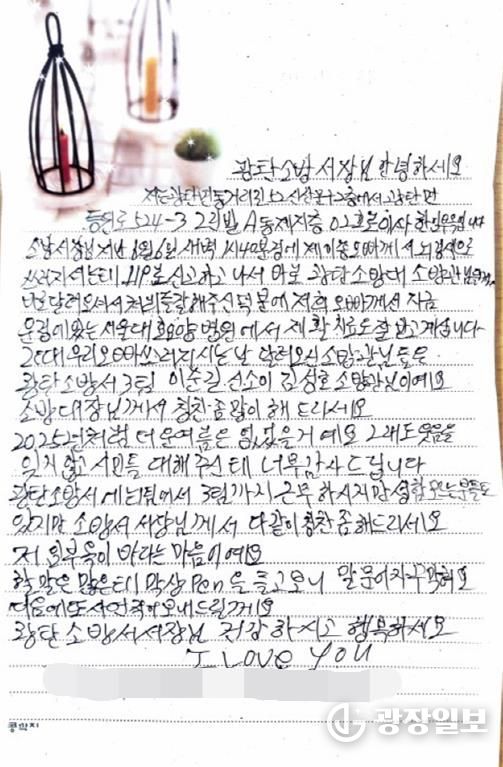 광탄소방서장님 안녕하세요
저는 광탄면 에서 광탄면
등원로 524-3 2동 지층 02호로 이사
소방서장님 지난 8월 6일 새벽 1시 40분경에 제 오빠께서 뇌경색으로
쓰러지셔는데 119로 신고하고 나서 바로 광탄소방대 소방관님
달려오셔서 처치를 잘해주신 덕분에 저희 오빠께서 지금
운정에 있는 서울대효요양병원에서 재활치료도 잘 받고 계십니다
그런대 우리오빠쓰러지시는 날 달려오신 소방관님들은
광탄소방서3팀 이순길 선소이 김성호 소방관님이예요
소방대장님께서 칭찬좀많이 해 드리세요
2025년처럼 더운여름은 없었을거예요 그래도 웃음을
잊지않고 시민들 대해주신테 너무감사드립니다
광탄소방서에 팀에서 3팀까지 근무 하시지만 성함 모르는분들도
있지만 소방서 서장님께서 다같이 칭찬 좀해드리세요
저 외부욱이 바라는 마음이예요
할 말은 많은데 막상 Pen을 들고보니 말문이 막혀요
다음에 또 사연 적어보내드릴게요
광탄 소방서서장님 건강하시고 행복하세요
I LOVE YOU
광장일보